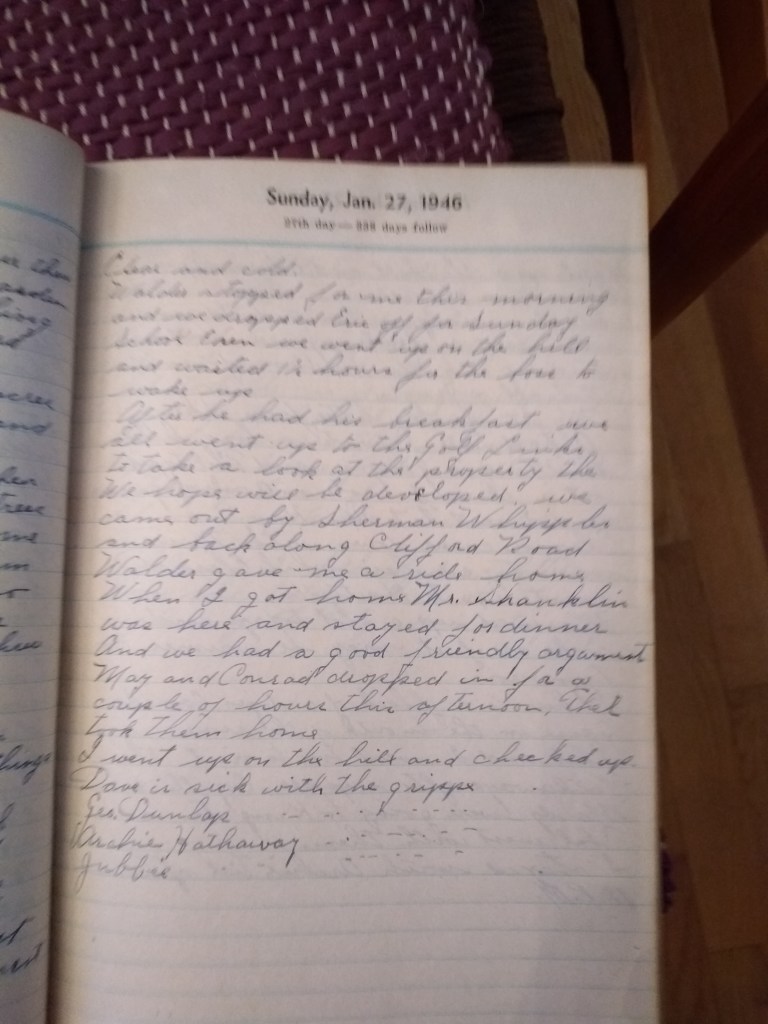 Sunday, Jan. 27, 1946
27th day — 338 days follow
Clear and cold.
Walder stopped for me this morning
and we dropped Eric off for Sunday
School Then we went up on the hill
and waited 1½ hours for the boss to
wake up
After he had his breakfast we
all went up to the Golf Links
to take a look at the property the
We hope will be developed. we
came out by Sherman Whipple
and back along Clifford Road
Walder gave me a ride home
When I got home Mr. Shanklin
was here and stayed for dinner
And we had a good friendly argument
May and Conrad dropped in for a
couple of hours this afternoon.
took them home
I went up on the hill and checked up.
Dave is sick with the grippe
Geo. Dunlap
Archie Hathaway
Jubbie